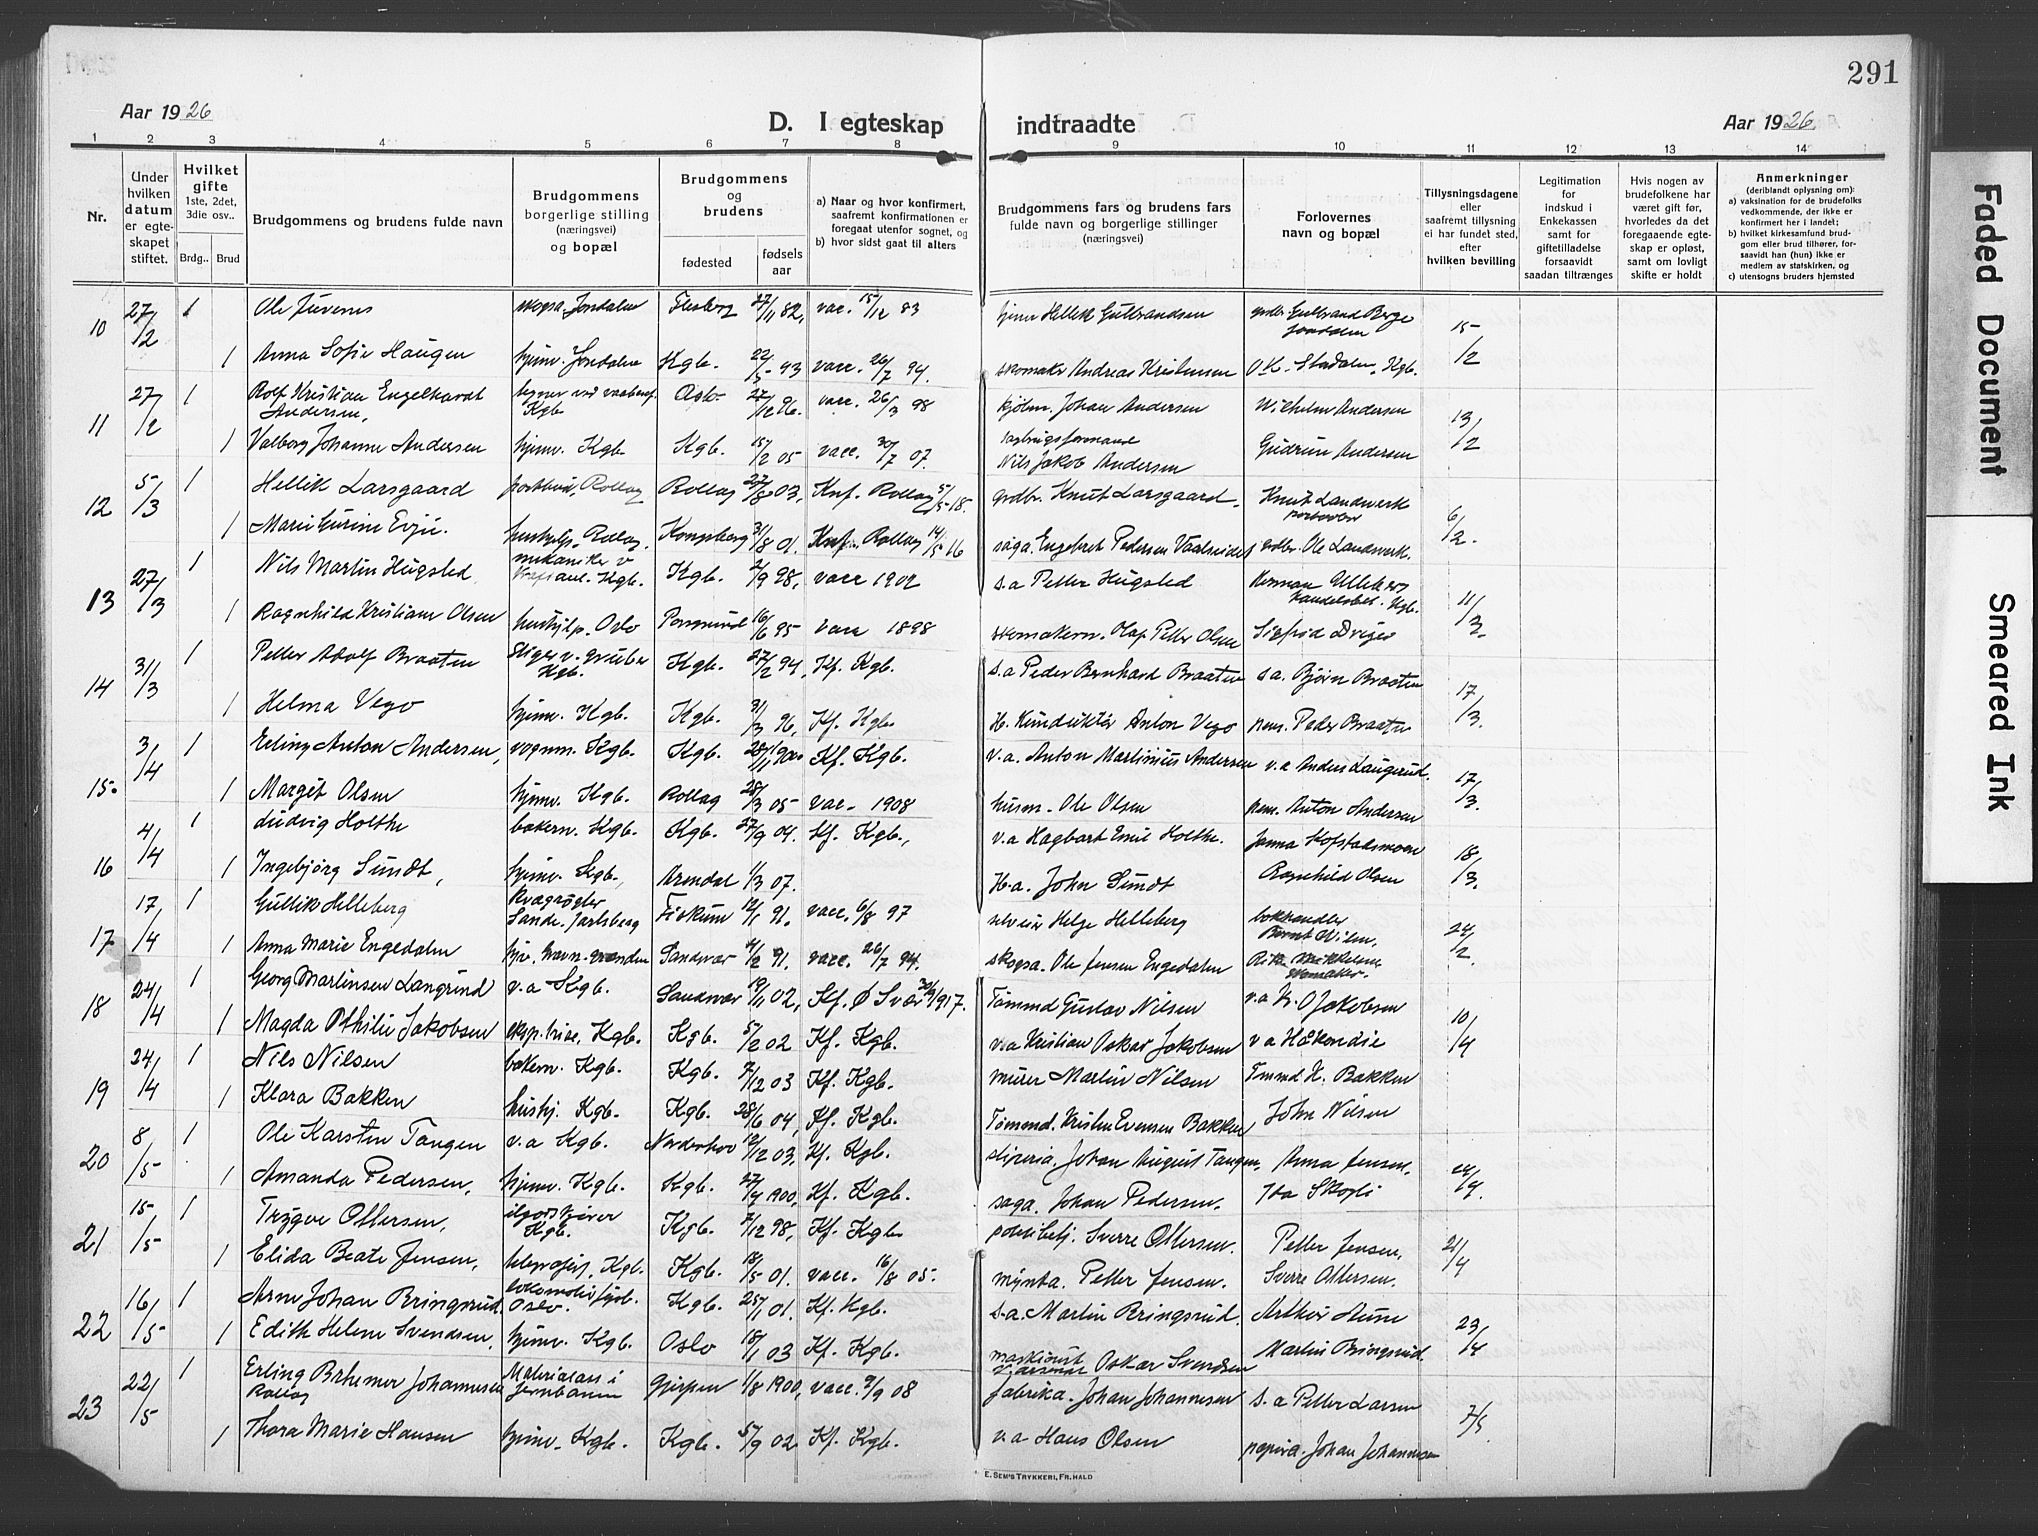 291
Aar 1926
D. I egteskap
indtraadte
Aar 1926
1 2 3 4 5 6 7 8 9 10 11 12 13 14
Nr.
Under hvilken datum er egte-skapet stiftet.
Hvilket gifte
1ste, 2det, 3die osv..
Brdg.. Brud
Brudgommens og brudens fulde navn
Brudgommens borgerlige stilling (næringsvei) og bopæl
Brudgommens og brudens
fødested
fødsels aar
a) Naar og hvor konfirmert, saafremt konfirmationen er foregaat utenfor sognet, og
b) hvor sidst gaat til alters
Brudgommens fars og brudens fars fulde navn og borgerlige stillinger (næringsvei)
Forlovernes navn og bopæl
Tillysningsdagene eller saafremt tillysning ei har fundet sted, efter hvilken bevilling
Legitimation for indskud i Enkekassen samt for giftetilladelse forsaavidt saadan tiltrænges
Hvis nogen av brudefolkene har været gift før, hvorledes da det foregaaende egte-skap er opløst, samt om lovligt skifte er holdt
Anmerkninger
(deriblandt oplysning om):
a) vaksination for de brudefolks vedkommende, der ikke er konfirmert her i landet;
b) hvilket kirkesamfund brud-gom eller brud tilhører, for-saavidt han (hun) ikke er medlem av statskirken, og
c) utensogns bruders hjemsted
10 27/2 1 Ole Juvenes skogsa. Jondalen Flesberg 27/11 82, vac. 15/12 83 Hellik Gulbrandsen grdbr. Gulbrand Berge Jondalen 15/2
1 Anna Sofie Haugen hjemv. Jondalen Kgb. 22/5 93 vacc. 26/7 94. skomaker Andreas Kristensen Stadalen, Kgb.
11 27/2 1 Rolf Kristian Engelhardt Andersen, Kgb 27/12 96. vacc. 26/3 98 Johan Andersen Wilhelm Andersen 13/2
1 Valborg Johanne Andersen hjemv. Kgb. Kgb. 15/2 05 vacc. 30/7 07. Nils Jakob Andersen Gudrun Andersen
12 5/3 1 Hellik Larsgaard postbud, Rollag Rollag 27/8 03, Knf. Rollag 5/5-18. grdbr. Knut Larsgaard Knut Landverk 6/2
1 Marie Gurine Evju. hushjelp, Rollag. Kongsberg 31/8 01. Knf. Rollag 14/5 16 saga. Engebret Pedersen grdbr. Ole Landverk.
13 27/3 1 Nils Martin Hugsted mekaniker v Kgb. Kgb. 2/9 98, vacc 1902 s.a Petter Hugsted Herman Ulleberg Kgb. 11/3
1 Ragnhild Kristiane Olsen hushjelp. Oslo Porsgrund 16/6 95 vacc 1898 skomakerm. Olap Petter Olsen Sigfrid
14 31/3 1 Petter Adolf Braaten Stiger v. gruber Kgb. Kgb. 27/2 94, Kf. Kgb. s.a Peder Bernhard Braaten s.a. Bjørn Braaten 17/3
1 Helma Vego hjemv. Kgb. Kgb. 31/3 96, Kf. Kgb. Anton Vego pens. Peder Braaten
15 3/4 1 Erling Anton Andersen, vognm. Kgb. Kgb. 28/11 1900 Kf. Kgb. v.a. Anton Martinius Andersen v.a Anders Laugerud. 17/3
1 Margit Olsen hjemv. Kgb. Rollag 28/3 05 vac. 1908 husm. Ole Olsen pens. Anton Andersen
16 4/4 1 Ludvig Holthe bakerm. Kgb. Kgb. 27/9 04. Kf. Kgb., v.a Hagbart Emil Holthe. Janna Hofstadmoen 18/3
1 Ingebjørg Sundt, hjemv. Kgb. Arendal 1/3 07. H.a. John Sundt Ragnhild Olsen
17 17/4 1 Gullik Helleberg Sande. Jarlsberg Fiskum 12/5 91. vacc. 6/8 97 selveier Helge Helleberg bokhandler Bernt Nilsen. 24/2
1 Anna Marie Engedalen Sandsvær 4/2 91. vacc. 26/7 94. skogsa. Ole Jensen Engedalen skomaker.
18 24/4 1 Georg Martinsen Langrind v.a Kgb. Sandsvær 19/11 02, Kf. Ø Svær 1917. Tømmd Gustav Nilsen v.a K. O Jakobsen 10/4
1 Magda Othilie Jakobsen Kgb. Kgb. 5/2 02 Kf. Kgb. v.a Kristian Oskar Jakobsen v a Håkon
19 24/4 1 Nils Nilsen bakerm. Kgb. Kgb. 7/12 03 Kf. Kgb. murer Martin Nilsen Tmmd K. Bakken
1 Klara Bakken hushj. Kgb. Kgb. 28/6 04, Kf. Kgb. Tømmd. Kristen Evensen Bakken John Nilsen
20 8/5 1 Ole Karsten Tangen v.a Kgb. Norderhov 12/12 03, Kf. Kgb. sliperia. Johan August Tangen, Anna Jensen, 24/4
1 Amanda Pedersen, hjemv. Kgb. Kgb. 27/4 1900, Kf. Kgb. saga. Johan Pedersen. Ida Skogli
21 15/5 1 Trygve Ottersen, ilgodskjører Kgb. Kgb. 7/12 98, Kf. Kgb. politibetj. Sverre Ottersen. Petter Jensen, 21/4
1 Elida Beate Jensen, Kgb. Kgb. 18/5 01. vacc. 16/8 05. mynta. Petter Jensen. Sverre Ottersen.
22 16/5 1 Arne Johan Bringsrud Oslo. Kgb. 25/1 01. Kf. Kgb. s.a. Martin Bringsrud. Arthur Aune 23/4
1 Edith Helene Svendsen, hjemv. Kgb. Oslo 18/1 03 Kf. Kgb. maskinist Oskar Svendsen Martin Bringsrud.
23 22/5 1 Erling Johannesen Rollag Materialass i Jernbanen Gjerpen 1/8 1900, vacc. 9/9 08 fabrika. Johan Johannesen s.a Petter Larsen 7/5
1 Thora Marie Hansen hjemv. Kgb. Kgb. 5/9 02 Kf. Kgb. v.a Hans Olsen papira. Johan Johannesen
E. SEM'S TRYKKERI, FR.HALD
Faded Document
Smeared Ink